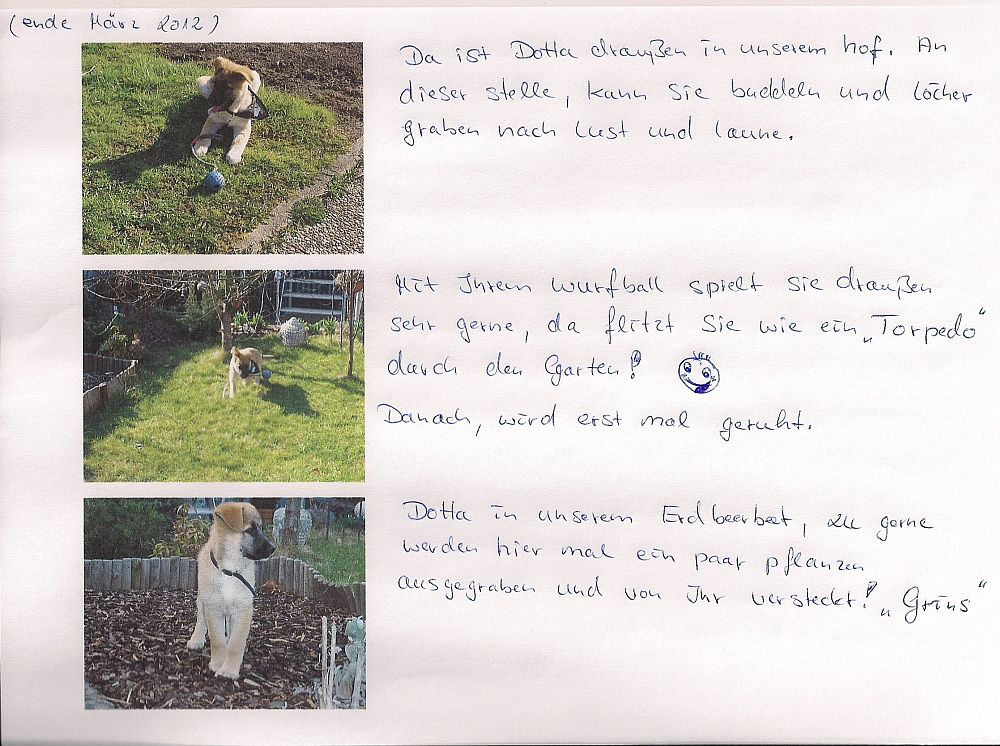 (ende März 2012)
Da ist Dotta draußen in unserem hof. An
dieser stelle, kann Sie buddeln und löcher
graben nach lust und laune.
Mit Ihrem wurfball spielt sie draußen
sehr gerne, da flitzt Sie wie ein „Torpedo“
durch den Garten!
Danach, wird erst mal geruht.
Dotta in unserem Erdbeerbeet, zu gerne
werden hier mal ein paar pflanzen
ausgegraben und von Ihr versteckt! „Grins“